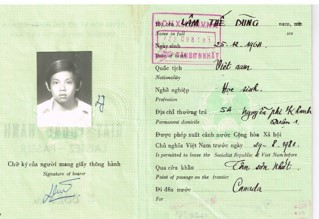 Chữ ký của người mang giấy thông hành
Signature of bearer
Họ, tên LÂM THẾ DŨNG nam,
Name in full
Ngày sinh 25.12.1964
Date of birth
Quốc tịch Việt nam
Nationality
Nghề nghiệp Học sinh
Profession
Địa chỉ thường trú 5A Nguyễn Phi Khanh
Permanent domicile Quận 1
Được phép xuất cảnh nước Cộng Hòa Xã hội
Chủ nghĩa Việt Nam trước ngày
Is permitted to leave the Socialist Republic of Viet Nam before
Qua cửa khẩu Tân sơn nhất
Point of passage on the frontier
Đi đến nước Canada